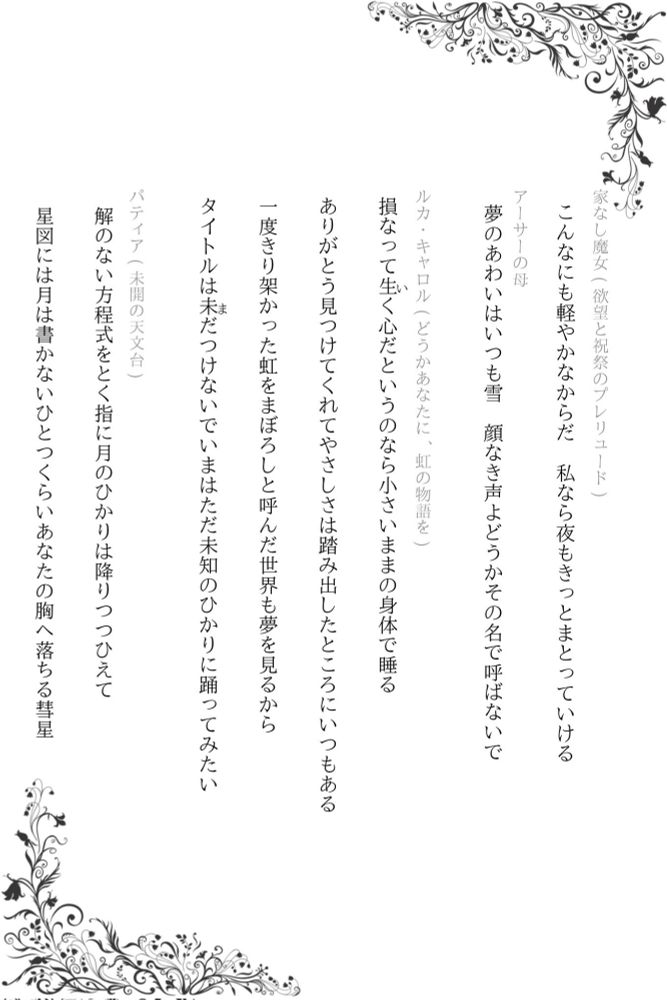 家なし魔女(欲望と祝祭のプレリュード)
こんなにも軽やかなからだ　私なら夜もきっとまとっていける
アーサーの母
夢のあわいはいつも雪　顔なき声よどうかその名で呼ばないで
ルカ・キャロル(どうかあなたに、虹の物語を)
損なって生く心だというのなら小さいままの身体で睡る
ありがとう見つけてくれてやさしさは踏み出したところにいつもある
一度きり架かった虹をまぼろしと呼んだ世界も夢を見るから
タイトルは未だつけないでいまはただ未知のひかりに踊ってみたい
パティア(未開の天文台)
解のない方程式をとく指に月のひかりは降りつつひえて
星図には月は書かないひとつくらいあなたの胸へ落ちる彗星